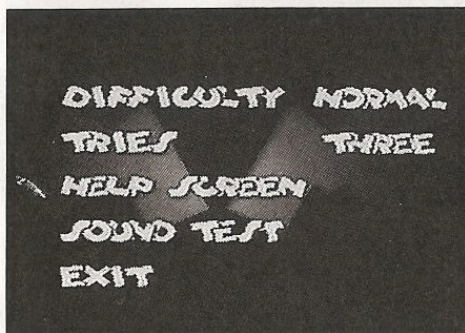 DIFFICULTY NORMAL
TRIES THREE
HELP SCREEN
SOUND TEST
EXIT